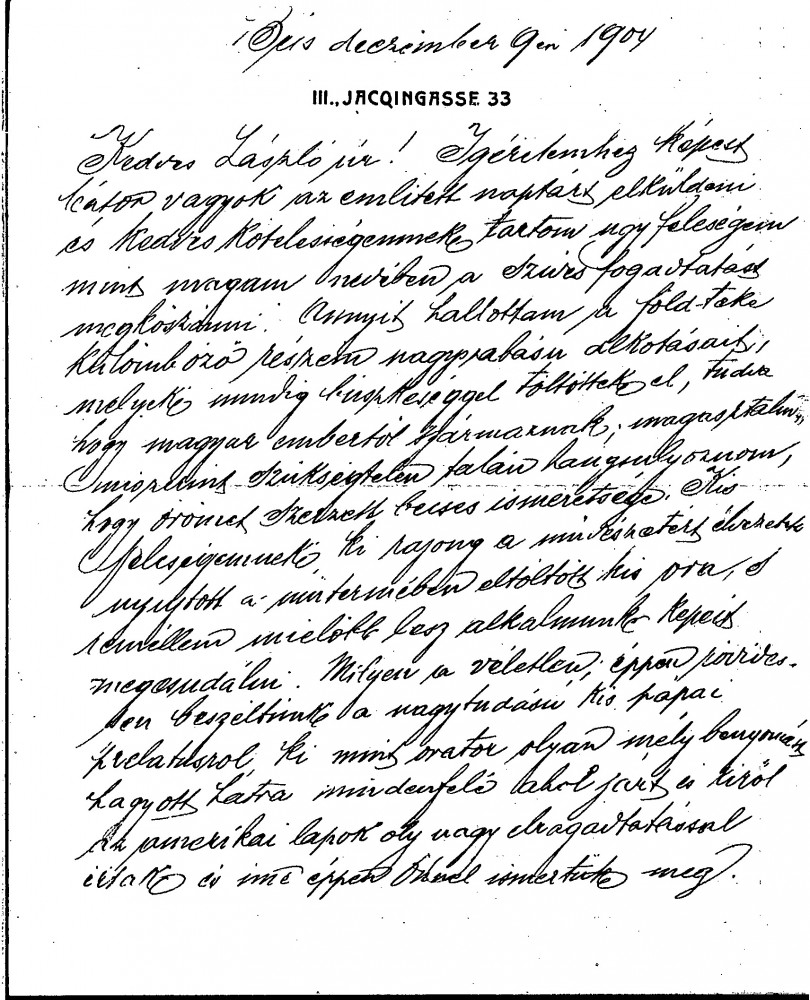 Bécs deczember 9én 1904
III., JACQINGASSE 33
Kedves László úr! Igéretemhez képest
bátor vagyok az emlitett naptárt elküldeni
és kedves kötelességemnek tartom ugy feleségem
mint magam nevében a szives fogadtatást
megköszönni. Annyit hallottam a föld-teke
külömböző részein nagyszabásu alkotásait,
melyek mindig büszkeséggel töltöttek el, tudva
hogy magyar embertől származnak;
szükségtelen talán hangsulyoznom,
hogy örömet szerzett becses ismeretsége. Kis
feleségemnek, ki rajong a művészetért élvezetet
nyujtott a műtermében eltöltött kis óra, s
remélem mielőbb lesz alkalmunk képeit
megcsudálni. Milyen a véletlen, éppen rövides-
sen beszéltünk a nagytudásu kis pápai
prelatusrol, ki mint orator olyan mély benyomást
hagyott hátra mindenfelé ahol járt és kiről
az amerikai lapok oly nagy elragadtatással
irtak és ime éppen Önnel ismertük meg.